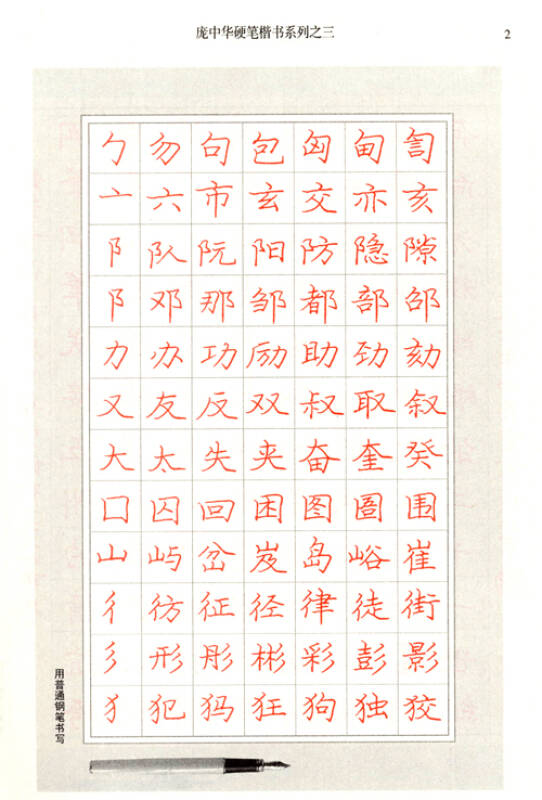 庞中华硬笔楷书系列之三
2
勹勿句包匈甸訇
亠六市玄交亦亥
阝队阮阳防隐隙
阝邓那邹都部邵
力办功励助劲劾
又友反双叔取叙
大太失夹奋奎癸
囗囚回困图圄围
山屿岔岌岛峪崔
彳彷征径律徒街
彡形彤彬彩彭影
犭犯犸狂狗独狡
用普通钢笔书写